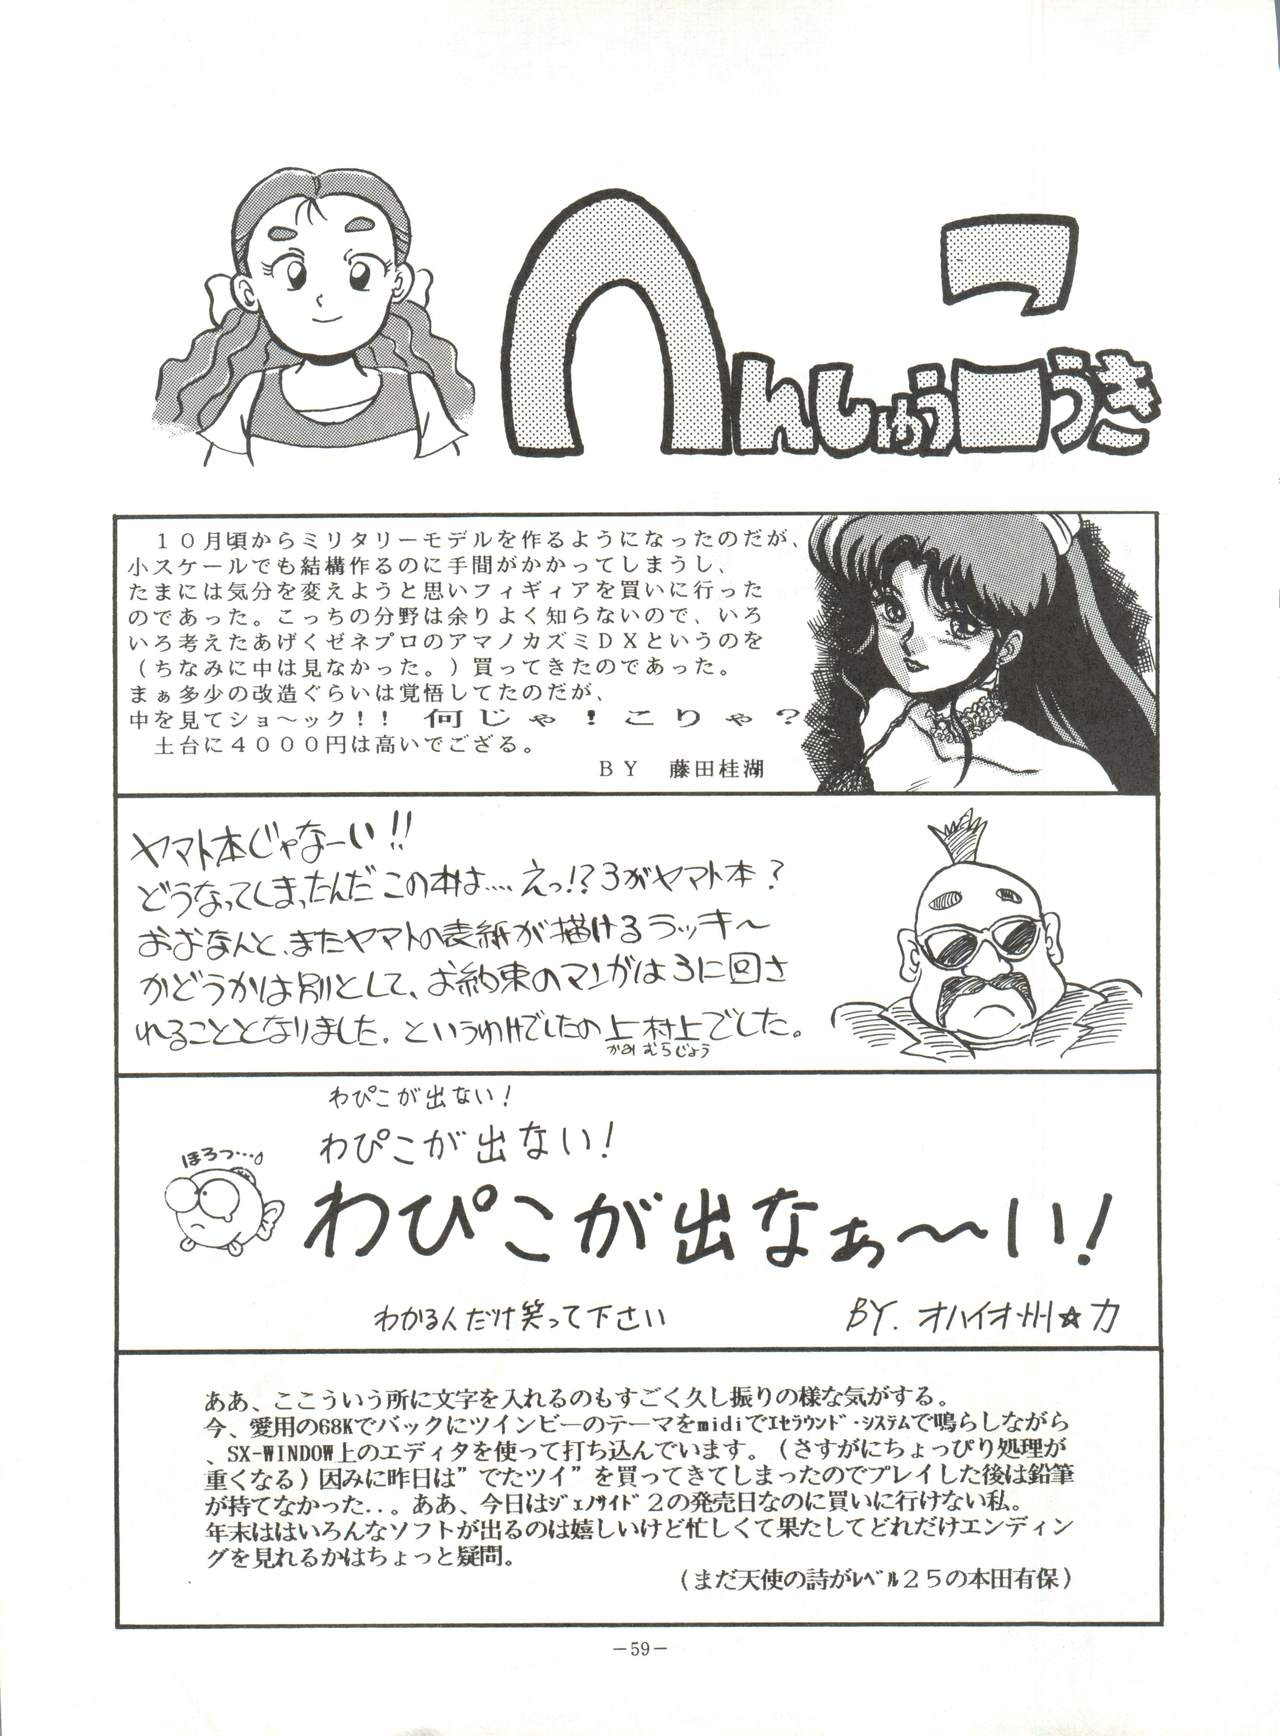 へんしゅうこうき
１０月頃からミリタリーモデルを作るようになったのだが、
小スケールでも結構作るのに手間がかかってしまうし、
たまには気分を変えようと思いフィギィアを買いに行った
のであった。こっちの分野は余りよく知らないので、いろ
いろ考えたあげくゼネプロのアマノカズミＤＸというのを
（ちなみに中は見なかった。）買ってきたのであった。
まぁ多少の改造ぐらいは覚悟してたのだが、
中を見てショ～ック！！ 何じゃ！こりゃ？
土台に４０００円は高いでござる。
ＢＹ 藤田桂湖
ヤマト本じゃなーい!!
どうなってしまったんだこの本は‥‥えっ!?３がヤマト本？
おおなんと、またヤマトの表紙が描けるラッキ～
かどうかは別として、お約束のマンガは３に回さ
れることとなりました。というわけでしたの上村上でした。
かみむらじょう
わぴこが出ない！
わぴこが出ない！
ほろっ…
わぴこが出なぁ～～い！
わかる人だけ笑って下さい
BY. オハイオ州☆力
ああ、ここういう所に文字を入れるのもすごく久し振りの様な気がする。
今、愛用の68Kでバックにツインビーのテーマをmidiでｴｾｻﾗｳﾝﾄﾞ･ｼｽﾃﾑで鳴らしながら
、SX-WINDOW上のエディタを使って打ち込んでいます。（さすがにちょっぴり処理が
重くなる）因みに昨日は”でたツイ”を買ってきてしまったのでプレイした後は鉛筆
が持てなかった...。ああ、今日はｼﾞｪﾉｻｲﾄﾞ２の発売日なのに買いに行けない私。
年末ははいろんなソフトが出るのは嬉しいけど忙しくて果たしてどれだけエンディン
グを見れるかはちょっと疑問。
（まだ天使の詩がﾚﾍﾞﾙ２５の本田有保）
－59－